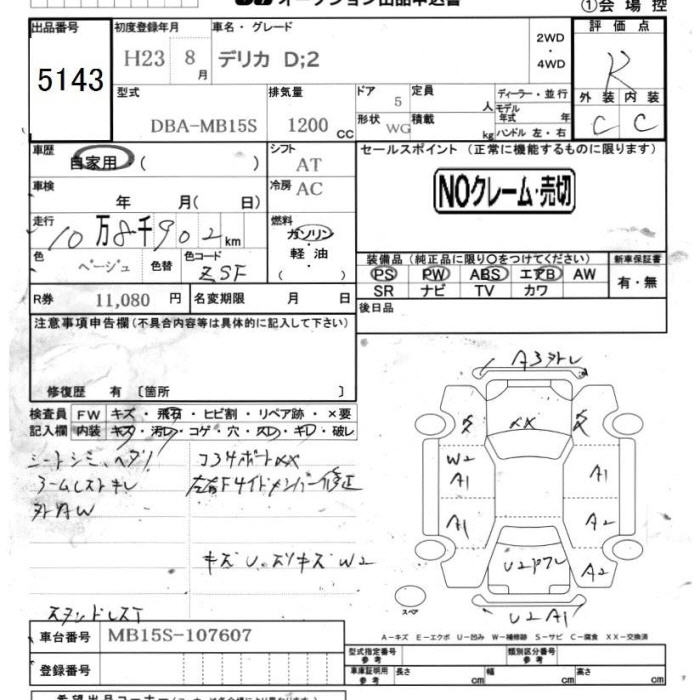 オークション出品申込書
①会場控
出品番号
5143
初度登録年月
H23 8月
車名・グレード
デリカ D;2
2WD
・
4WD
評価点
R
型式
DBA-MB15S
排気量
1200 CC
ドア 5
定員 人
形状 WG
積載 kg
ディーラー・並行
モデル年式 年
ハンドル 左・右
外装 内装
C C
車歴
自家用 ( )
シフト AT
セールスポイント (正常に機能するものに限ります)
NOクレーム・売切
車検
年 月( 日)
冷房 AC
走行
10万8千902km
燃料
ガソリン
・
軽油
( )
色
ベージュ
色替
色コード
ZSF
装備品 (純正品に限り○をつけてください)
PS PW ABS エアB AW
SR ナビ TV カワ
新車保証書
有・無
R券 11,080 円
名変期限 月 日
後日品
注意事項申告欄 (不具合内容等は具体的に記入して下さい)
修復歴 有 〔箇所 〕
検査員記入欄
FW キズ・飛石・ヒビ割・リペア跡・×要
内装 キズ・汚レ・コゲ・穴・スレ・キレ・破レ
シートシミ、ヘタリ
アームレストキレ
外AW
コアサポートXX
左右Fサイドメンバー修正
キズU、スリキズW2
A3外レ
XX
W2
A1
A1
A1
A2
A2
U2
U2A1
スペア
A-キズ E-エクボ U-凹み W-補修跡 S-サビ C-腐食 XX-交換済
車台番号
MB15S-107607
登録番号
型式指定番号 参考
類別区分番号 参考
車庫証明用 参考
長さ cm
幅 cm
高さ cm
希望出品コーナー